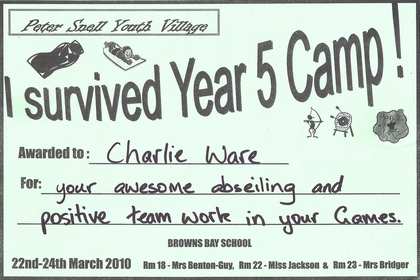 Peter Snell Youth Village
I survived Year 5 Camp!
Awarded to: Charlie Ware
For: your awesome abseiling and
positive team work in your Games.
BROWNS BAY SCHOOL
22nd-24th March 2010 Rm 18 - Mrs Benton-Guy, Rm 22 - Miss Jackson & Rm 23 - Mrs Bridger